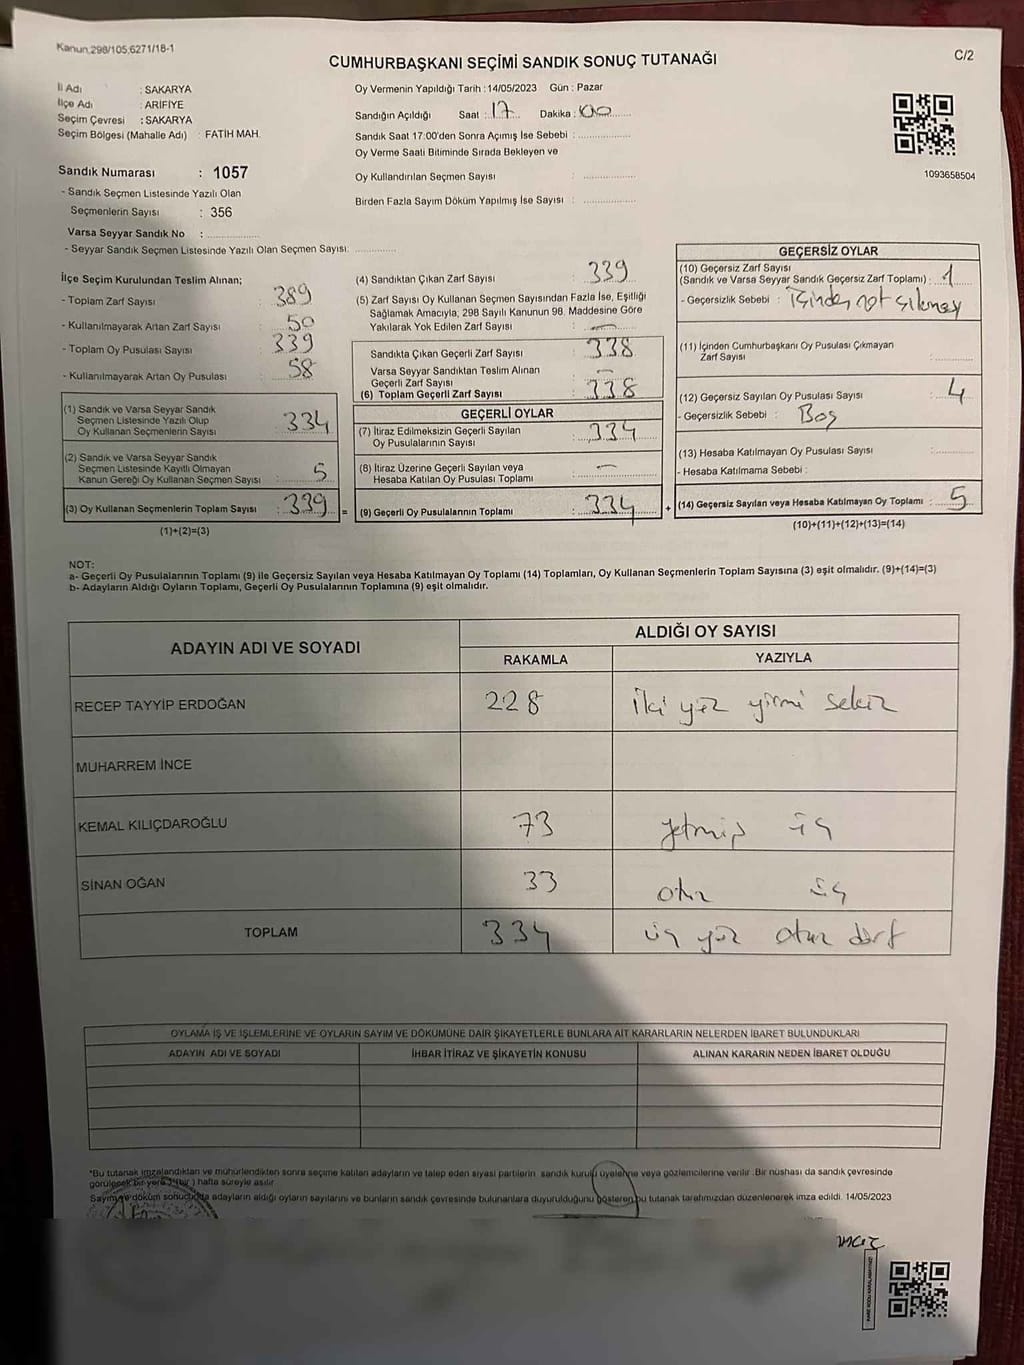 Kanun,298/105,6271/18-1
CUMHURBAŞKANI SEÇİMİ SANDIK SONUÇ TUTANAĞI
C/2
İl Adı : SAKARYA
İlçe Adı : ARİFİYE
Seçim Çevresi : SAKARYA
Seçim Bölgesi (Mahalle Adı) : FATİH MAH.
Oy Vermenin Yapıldığı Tarih : 14/05/2023 Gün : Pazar
Sandığın Açıldığı Saat : 17 Dakika : 00
Sandık Saat 17:00'den Sonra Açımış İse Sebebi :
Oy Verme Saati Bitiminde Sırada Bekleyen ve
Oy Kullandırılan Seçmen Sayısı :
Birden Fazla Sayım Döküm Yapılmış İse Sayısı :
1093658504
Sandık Numarası : 1057
- Sandık Seçmen Listesinde Yazılı Olan
Seçmenlerin Sayısı : 356
Varsa Seyyar Sandık No :
- Seyyar Sandık Seçmen Listesinde Yazılı Olan Seçmen Sayısı:
İlçe Seçim Kurulundan Teslim Alınan;
- Toplam Zarf Sayısı : 389
- Kullanılmayarak Artan Zarf Sayısı : 50
- Toplam Oy Pusulası Sayısı : 339
- Kullanılmayarak Artan Oy Pusulası : 58
(1) Sandık ve Varsa Seyyar Sandık
Seçmen Listesinde Yazılı Olup
Oy Kullanan Seçmenlerin Sayısı : 334
(2) Sandık ve Varsa Seyyar Sandık
Seçmen Listesinde Kayıtlı Olmayan
Kanun Gereği Oy Kullanan Seçmen Sayısı : 5
(3) Oy Kullanan Seçmenlerin Toplam Sayısı : 339 =
(1)+(2)=(3)
(4) Sandıktan Çıkan Zarf Sayısı : 339
(5) Zarf Sayısı Oy Kullanan Seçmen Sayısından Fazla İse, Eşitliği
Sağlamak Amacıyla; 298 Sayılı Kanunun 98. Maddesine Göre
Yakılarak Yok Edilen Zarf Sayısı : —
Sandıkta Çıkan Geçerli Zarf Sayısı : 338
Varsa Seyyar Sandıktan Teslim Alınan
Geçerli Zarf Sayısı : —
(6) Toplam Geçerli Zarf Sayısı : 338
GEÇERLİ OYLAR
(7) İtiraz Edilmeksizin Geçerli Sayılan
Oy Pusulalarının Sayısı : 334
(8) İtiraz Üzerine Geçerli Sayılan veya
Hesaba Katılan Oy Pusulası Toplamı : —
(9) Geçerli Oy Pusulalarının Toplamı : 334 +
GEÇERSİZ OYLAR
(10) Geçersiz Zarf Sayısı
(Sandık ve Varsa Seyyar Sandık Geçersiz Zarf Toplamı) : 1
- Geçersizlik Sebebi : içinden not
(11) İçinden Cumhurbaşkanı Oy Pusulası Çıkmayan
Zarf Sayısı :
(12) Geçersiz Sayılan Oy Pusulası Sayısı : 4
- Geçersizlik Sebebi : Boş
(13) Hesaba Katılmayan Oy Pusulası Sayısı :
- Hesaba Katılmama Sebebi :
(14) Geçersiz Sayılan veya Hesaba Katılmayan Oy Toplamı : 5
(10)+(11)+(12)+(13)=(14)
NOT:
a- Geçerli Oy Pusulalarının Toplamı (9) ile Geçersiz Sayılan veya Hesaba Katılmayan Oy Toplamı (14) Toplamları, Oy Kullanan Seçmenlerin Toplam Sayısına (3) eşit olmalıdır. (9)+(14)=(3)
b- Adayların Aldığı Oyların Toplamı, Geçerli Oy Pusulalarının Toplamına (9) eşit olmalıdır.
ADAYIN ADI VE SOYADI
ALDIĞI OY SAYISI
RAKAMLA YAZIYLA
RECEP TAYYİP ERDOĞAN 228 iki yüz yirmi sekiz
MUHARREM İNCE
KEMAL KILIÇDAROĞLU 73 yetmiş üç
SİNAN OĞAN 33 otuz üç
TOPLAM 334 üç yüz otuz dört
OYLAMA İŞ VE İŞLEMLERİNE VE OYLARIN SAYIM VE DÖKÜMÜNE DAİR ŞİKAYETLERLE BUNLARA AİT KARARLARIN NELERDEN İBARET BULUNDUKLARI
ADAYIN ADI VE SOYADI İHBAR İTİRAZ VE ŞİKAYETİN KONUSU ALINAN KARARIN NEDEN İBARET OLDUĞU
*Bu tutanak imzalandıktan ve mühürlendikten sonra seçime katılan adayların ve talep eden siyasi partilerin sandık kurulu üyelerine veya gözlemcilerine verilir. Bir nüshası da sandık çevresinde
görülecek bir yere 1 (bir) hafta süreyle asılır.
Sayım ve döküm sonucunda adayların aldığı oyların sayılarını ve bunların sandık çevresinde bulunanlara duyurulduğunu gösteren bu tutanak tarafımızdan düzenlenerek imza edildi. 14/05/2023